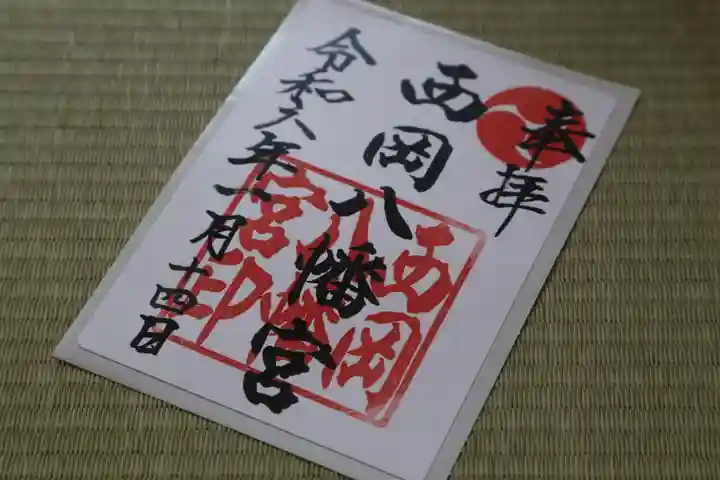 奉拝
西岡八幡宮
西岡八幡宮印
令和六年一月十四日